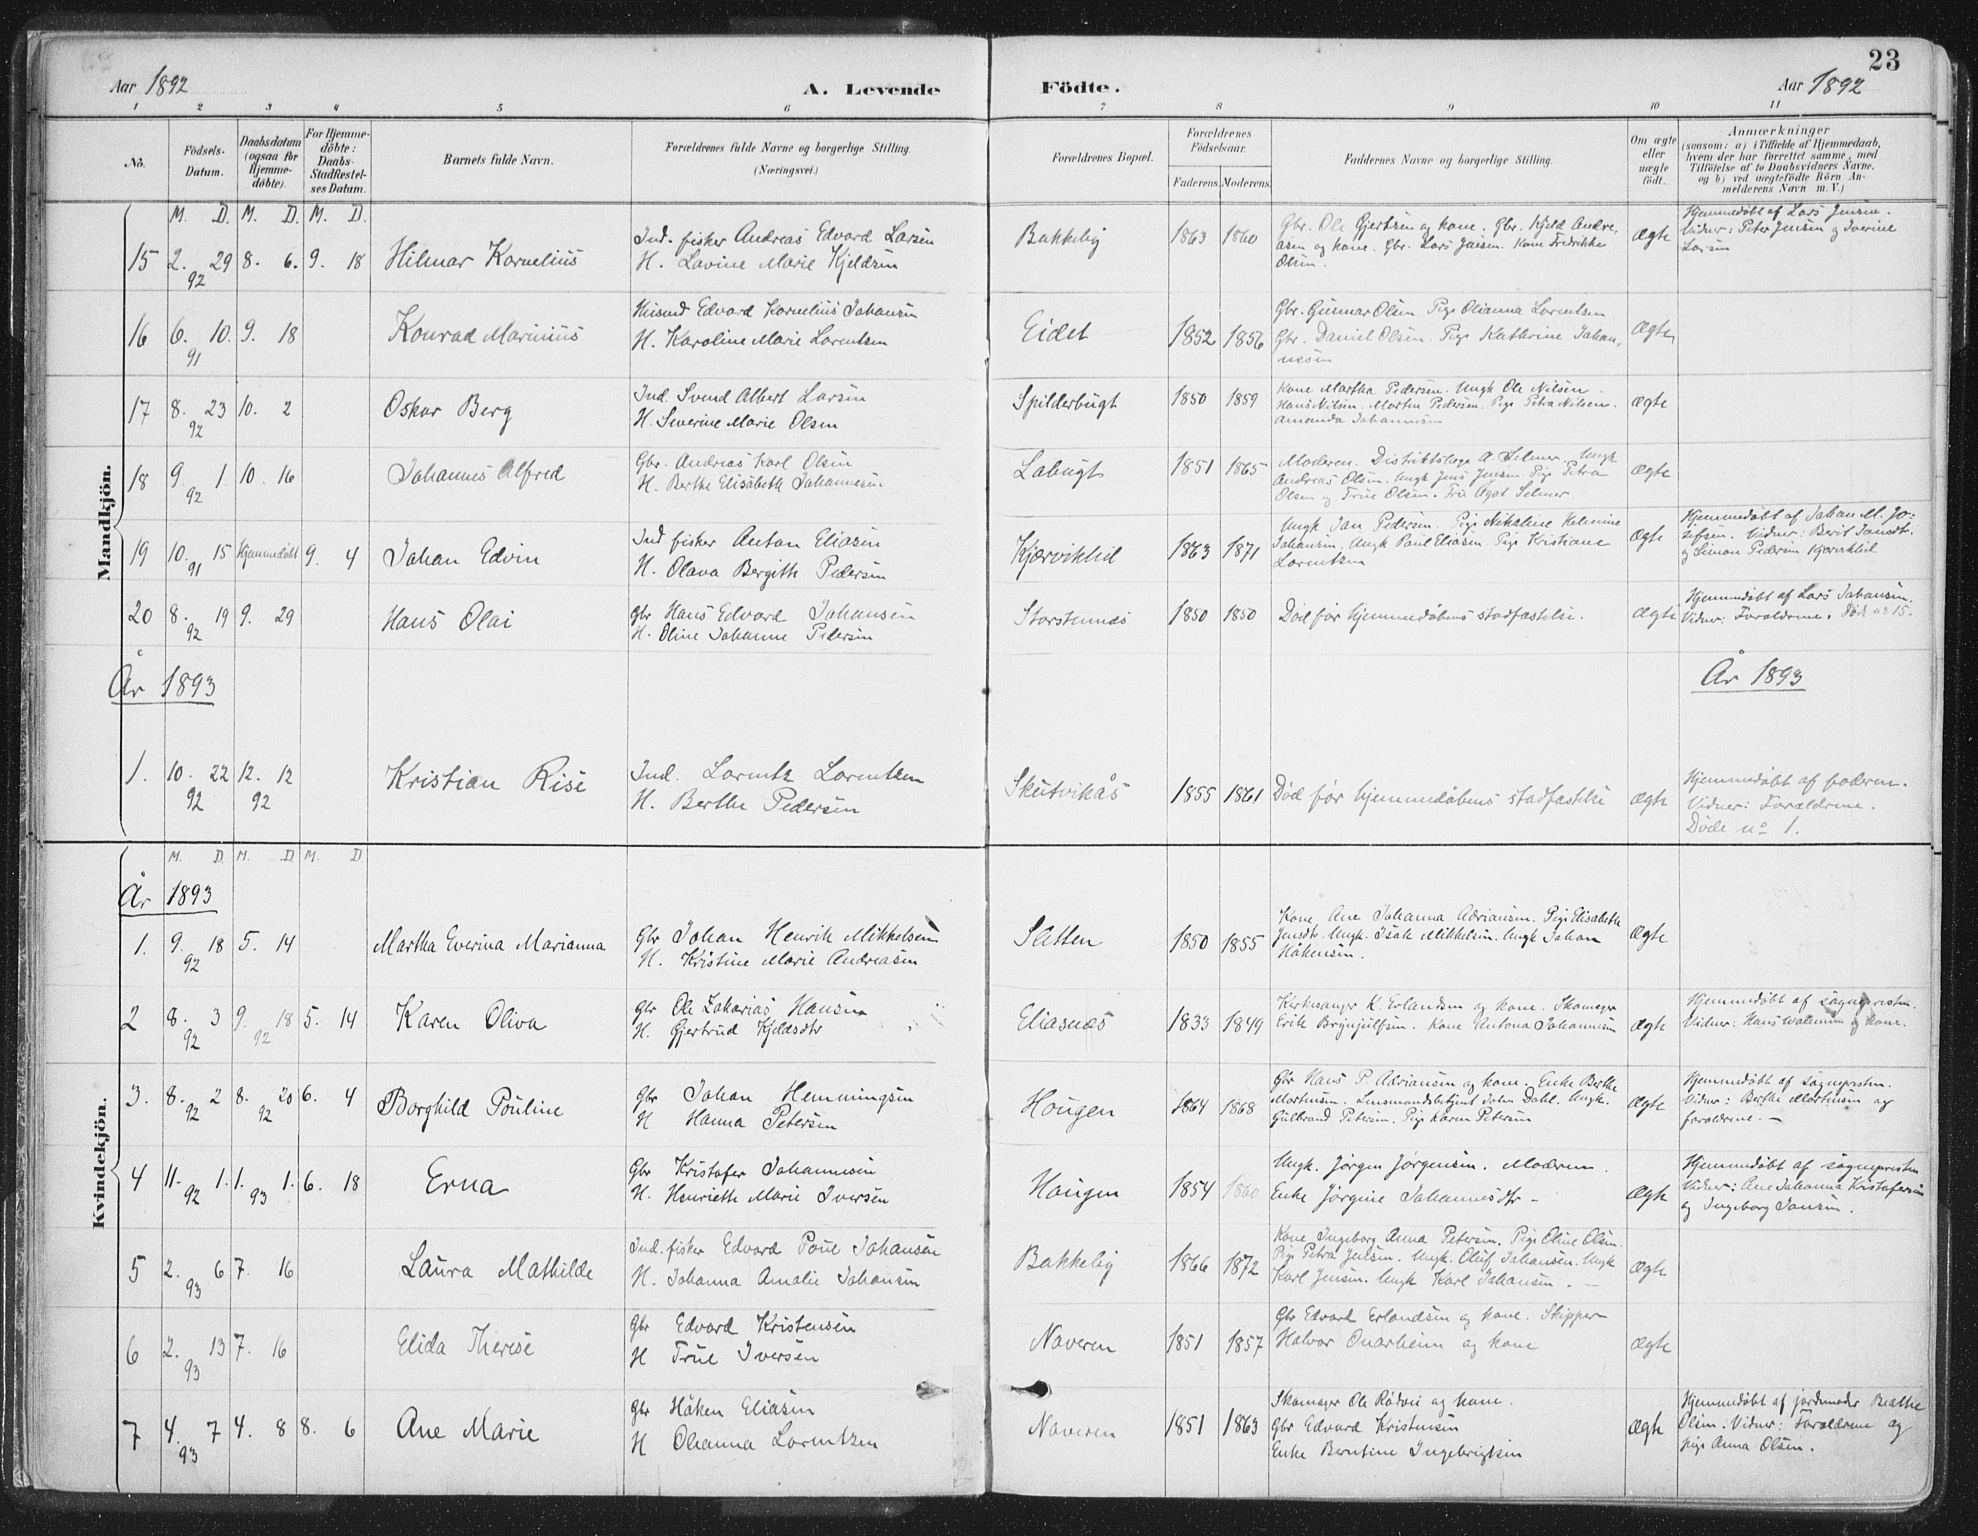 23
Aar 1892 A. Levende Födte. Aar 1892
1 2 3 4 5 6 7 8 9 10 11
No. Födsels-Datum. Daabsdatum (ogsaa for Hjemme-döbte). For Hjemme-döbte: Daabs-Stadfæstel-ses Datum. Barnets fulde Navn. Forældrenes fulde Navne og borgerlige Stilling. (Næringsvei.) Forældrenes Bopæl. Forældrenes Födselsaar. Faderens. Moderens. Faddernes Navne og borgerlige Stilling. Om ægte eller uægte födt. Anmærkninger (saasom: a) i Tilfælde af Hjemmedaab, hvem der har forrettet samme, med Tilföielse af to Daabsvidners Navne, og b) ved uægtefödte Börn An-melderens Navn m. V.)
Mandkjön.
M. D. M. D. M. D.
15 2. 29 92 8. 6. 9. 18 Hilmar Kornelius
Ind. fisker Andreas Edvard Larsen
H. Lavine Marie Kjeldsen
Bakkeby 1863 1860
Gbr. Ole Gjertsen og kone. Gbr. Kjeld Andre-
asen og kone. Gbr. Lars Jensen. Kone Fredrikke
Olsen.
ægte
Hjemmedøbt af Lars Jensen.
Vidner: Peter Jensen og Iverine
Larsen
16 6. 10. 91 9. 18 Konrad Marinius
Husmd Edvard Kornelius Johansen
H. Karoline Marie Lorentsen
Eidet 1852 1856
Gbr. Gunnar Olsen. Pige Olianna Lorentsen.
Gbr. Daniel Olsen. Pige Kathrine Johan-
nesen
ægte
17 8. 23 92 10. 2 Oskar Berg
Ind. Svend Albert Larsen
H. Severine Marie Olsen
Spilderbugt 1850 1859
Kone Martha Pedersen. Ungk Ole Nilsen.
Hans Nilsen. Morten Pedersen. Pige Petra Nilsen.
Amanda Johannesen
ægte
18 9. 1. 92 10. 16 Johannes Alfred
Gbr. Andreas Karl Olsen
H. Berthe Elisabeth Johannesen
Labugt 1851 1865
Moderen. Distriktslæge A Selmer. Ungk
Andreas Olsen. Ungk Jens Jensen. Pige Petra
Olsen og Trine Olsen. Fru Agat Selmer.
ægte
19 10. 15 91 Hjemmedøbt 9. 4 Johan Edvin
Ind fisker Anton Eliasen
H. Olava Bergithe Pedersen
Kjærviklid 1863 1871
Ungk Jan Pedersen. Pige Nikoline Helmine
Johansen. Ungk Paul Eliasen. Pige Kristiane
Lorentsen
ægte
Hjemmedøbt af Johan M. Jo-
sefsen. Vidner: Berit Jansdt.
og Simon Pedersen Kjærviklid
20 8. 19 92 9. 29 Hans Olai
Gbr Hans Edvard Johansen
H. Oline Johanne Pedersen
Storstennæs 1850 1850
Død før hjemmedøbens stadfæstelse.
ægte
Hjemmedøbt af Lars Johansen.
Vidner: Forældrene. Døde no 15.
År 1893 År 1893
1. 10. 22 92 12. 12 92 Kristian Rise
Ind. Lorentz Lorentzen
H. Berthe Pedersen
Skutvikås 1855 1861
Død før hjemmedøbens stadfæstelse
ægte
Hjemmedøbt af faderen.
Vidner: Forældrene.
Døde no 1.
Kvindekjön.
M. D. M. D. M. D
År 1893
1. 9. 18 92 5. 14 Martha Everina Marianna
Gbr Johan Henrik Mikkelsen
H. Kristine Marie Andreasen
Sletten 1850 1855
Kone Ane Johanna Adriansen. Pige Elisabeth
Jensdr. Ungk. Isak Mikkelsen. Ungk Johan
Håkensen.
ægte
2 8. 3 92 9. 18 92 5. 14 Karen Oliva
Gbr Ole Zakarias Hansen
H. Gjertrud Kjeldsdtr
Eliasnæs 1833 1849
Kirkesanger K. Erlandsen og kone. Skomager
Erik Brynjulfsen. Kone Antona Johannesen
ægte
Hjemmedøbt af sognepresten.
Vidner: Hans og kone.
3. 8. 2 92 8. 20 92 6. 4 Borghild Pouline
Gbr Johan Hemmingsen
H Hanna Petersen
Hougen 1864 1868
Gbr Hans P. Adriansen og kone. Enke Berthe
Mortensen. Lensmandsbetjent John Dahl. Ungk.
Gulbrand Petersen. Pige Karen Petersen
ægte
Hjemmedøbt af sognepresten.
Vidner: Berthe Mortensen og
forældrene.
4 11. 1. 92 1. 1. 93 6. 18 Erna
Gbr Kristofer Johannesen
H. Henriette Marie Iversen
Hougen 1854 1860
Ungk. Jørgen Jørgensen. Moderen.
Enke Jørgine Johannesdtr
ægte
Hjemmedøbt af sognepresten
Vidner: Ane Johanna Kristofersen
og Ingeborg Jansen.
5 2. 6 93 7. 16 Laura Mathilde
Ind. fisker Edvard Poul Johansen
H. Johanna Amalie Johansen
Bakkeby 1866 1872
Kone Ingeborg Anna Petersen. Pige Oline Olsen.
Pige Petra Jensen. Ungk. Oluf Johansen. Ungk
Karl Jensen. Ungk Karl Johansen.
ægte
6 2. 13 93 7. 16 Elida Therese
Gbr Edvard Kristensen
H Trine Iversen
Naveren 1851 1857
Gbr Edvard Erlandsen og kone. Skipper
Halvor Onarheim og kone
ægte
7 4. 7 93 4. 8 8. 6 Ane Marie
Gbr Håken Eliasen
H Oleanna Lorentzen
Naveren 1851 1863
Skomager Ole Rødvei og kone.
Gbr Edvard Kristensen
Enke Berntine Ingebrigtsen
ægte
Hjemmedøbt af jordmoder Beathe
Olsen. Vidner: Forældrene og
pige Anna Olsen.